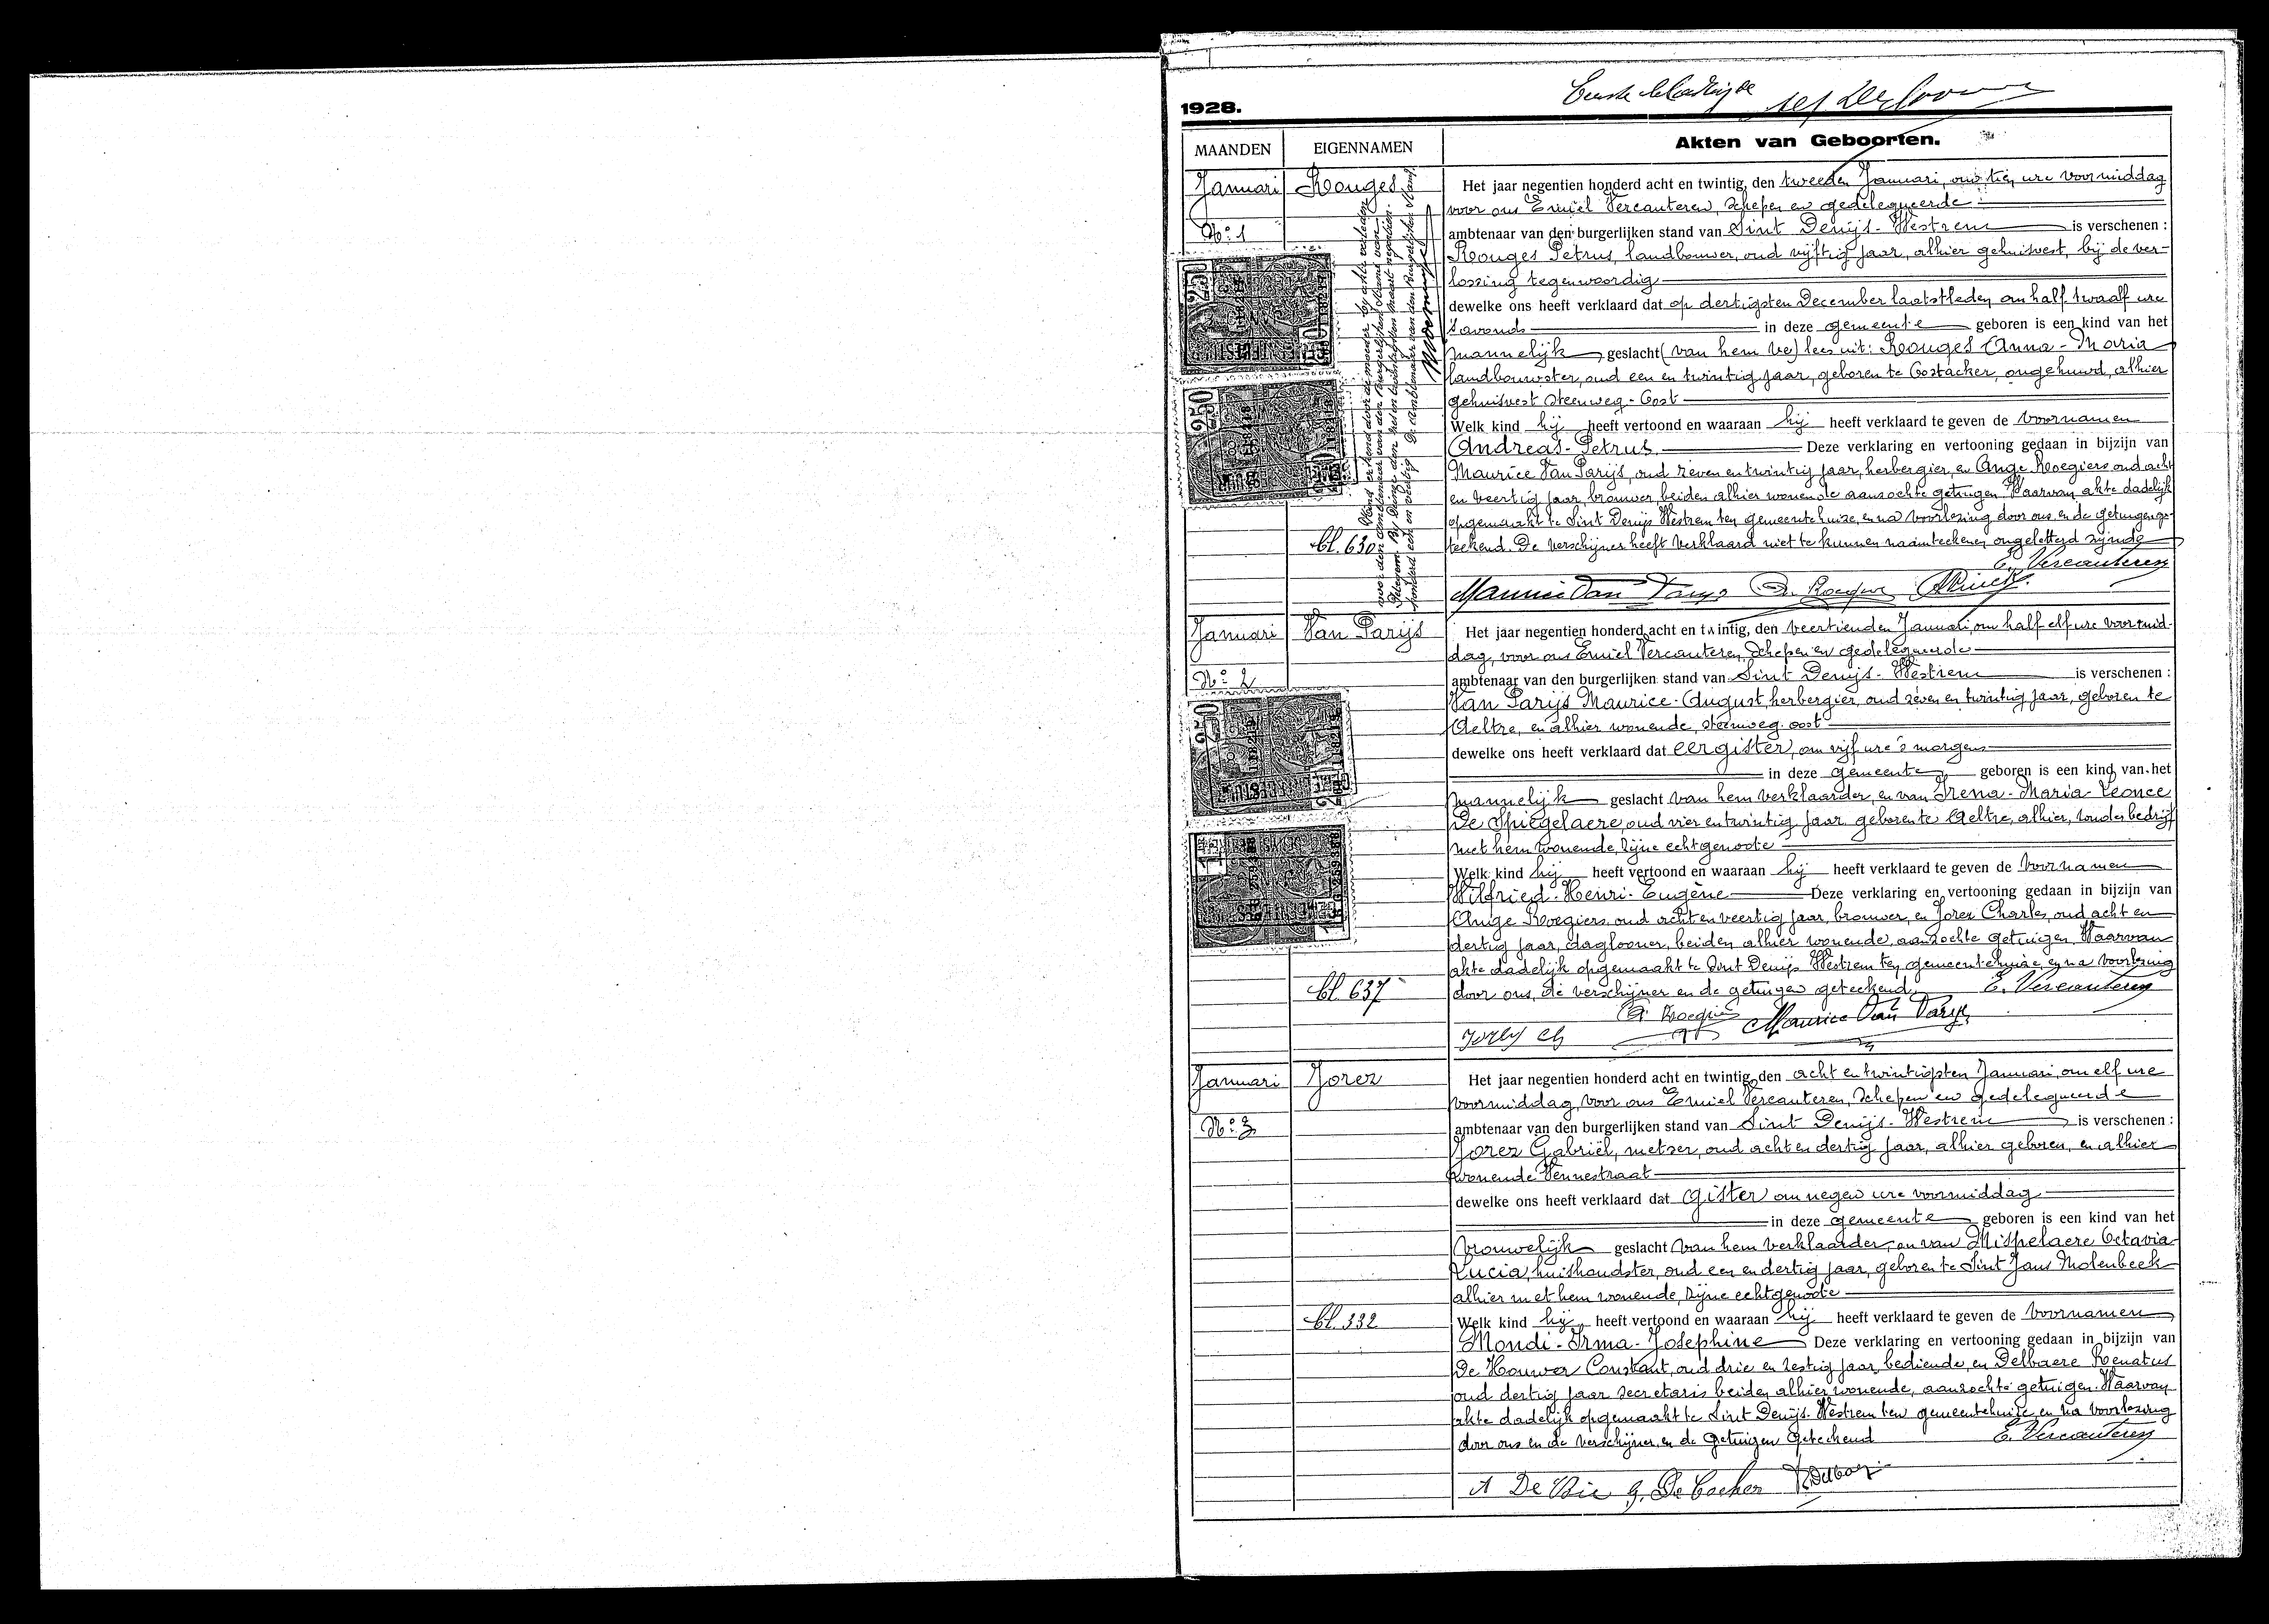 Eerste bladzijde
1928.
MAANDEN EIGENNAMEN Akten van Geboorten.
Januari Rouges
Nº 1
bl. 630
Het jaar negentien honderd acht en twintig, den tweeden Januari, om tien ure voormiddag
voor ons Emiel Vercauteren, schepen en gedelegueerde
ambtenaar van den burgerlijken stand van Sint Denijs-Westrem is verschenen :
Rouges Petrus, landbouwer, oud vijftig jaar, alhier gehuisvest, bij de ver-
lossing tegenwoordig
dewelke ons heeft verklaard dat op dertigsten December laatstleden om half twaalf ure
's avonds in deze gemeente geboren is een kind van het
mannelijk geslacht (van hem ve) lees uit: Rouges Anna-Maria
landbouwster, oud een en twintig jaar, geboren te Oostacker, ongehuwd, alhier
gehuisvest Steenweg-Oost
Welk kind hij heeft vertoond en waaraan hij heeft verklaard te geven de voornamen
Andreas-Petrus Deze verklaring en vertooning gedaan in bijzijn van
Maurice Van Parijs, oud zeven en twintig jaar, herbergier, en Ange Roegiers oud acht
en veertig jaar, brouwer, beiden alhier wonende aanzochte getuigen Waarvan akte dadelijk
opgemaakt te Sint Denijs Westrem ten gemeentehuize, en na voorlezing door ons, en de getuigen ge-
teekend. De verschijner heeft verklaard niet te kunnen naamteekenen ongeletterd zijnde
E. Vercauteren
Maurice Van Parys
Januari Van Parijs
Nº 2
bl. 637
Het jaar negentien honderd acht en twintig, den veertienden Januari, om half elf ure voormid-
dag, voor ons Emiel Vercauteren, schepen en gedelegueerde
ambtenaar van den burgerlijken stand van Sint Denijs-Westrem is verschenen :
Van Parijs Maurice-August, herbergier, oud zeven en twintig jaar, geboren te
Aeltre, en alhier wonende, steenweg-oost
dewelke ons heeft verklaard dat eergister, om vijf ure 's morgens
in deze gemeente geboren is een kind van het
mannelijk geslacht van hem verklaarder, en van Irena-Maria-Leonce
De Spiegelaere, oud vier en twintig jaar geboren te Aeltre, alhier, zonder bedrijf
met hem wonende, zijne echtgenoote
Welk kind hij heeft vertoond en waaraan hij heeft verklaard te geven de voornamen
Wilfried-Henri-Eugène Deze verklaring en vertooning gedaan in bijzijn van
Ange Roegiers oud acht en veertig jaar, brouwer, en Jorez Charles, oud acht en
dertig jaar, daglooner, beiden alhier wonende, aanzochte getuigen Waarvan
akte dadelijk opgemaakt te Sint Denijs Westrem ten gemeentehuize, en na voorlezing
door ons, de verschijner en de getuigen geteekend. E. Vercauteren
Jorez Ch Maurice Van Parys
Januari Jorez
Nº 3
bl. 332
Het jaar negentien honderd acht en twintig, den acht en twintigsten Januari, om elf ure
voormiddag, voor ons Emiel Vercauteren, schepen en gedelegueerde
ambtenaar van den burgerlijken stand van Sint Denijs-Westrem is verschenen :
Jorez Gabriël, metser, oud acht en dertig jaar, alhier geboren, en alhier
wonende Vennestraat
dewelke ons heeft verklaard dat gister om negen ure voormiddag
in deze gemeente geboren is een kind van het
vrouwelijk geslacht van hem verklaarder, en van Mispelaere Octavia-
Lucia, huishoudster, oud een en dertig jaar, geboren te Sint Jans Molenbeek
alhier met hem wonende, zijne echtgenoote
Welk kind hij heeft vertoond en waaraan hij heeft verklaard te geven de voornamen
Mondi-Irma-Josephine Deze verklaring en vertooning gedaan in bijzijn van
De Houwer Constant, oud drie en zestig jaar bediende, en Delbaere Renatus
oud dertig jaar secretaris beiden alhier wonende, aanzochte getuigen. Waarvan
akte dadelijk opgemaakt te Sint Denijs-Westrem ten gemeentehuize, en na voorlezing
door ons en de verschijner, en de getuigen geteekend E. Vercauteren